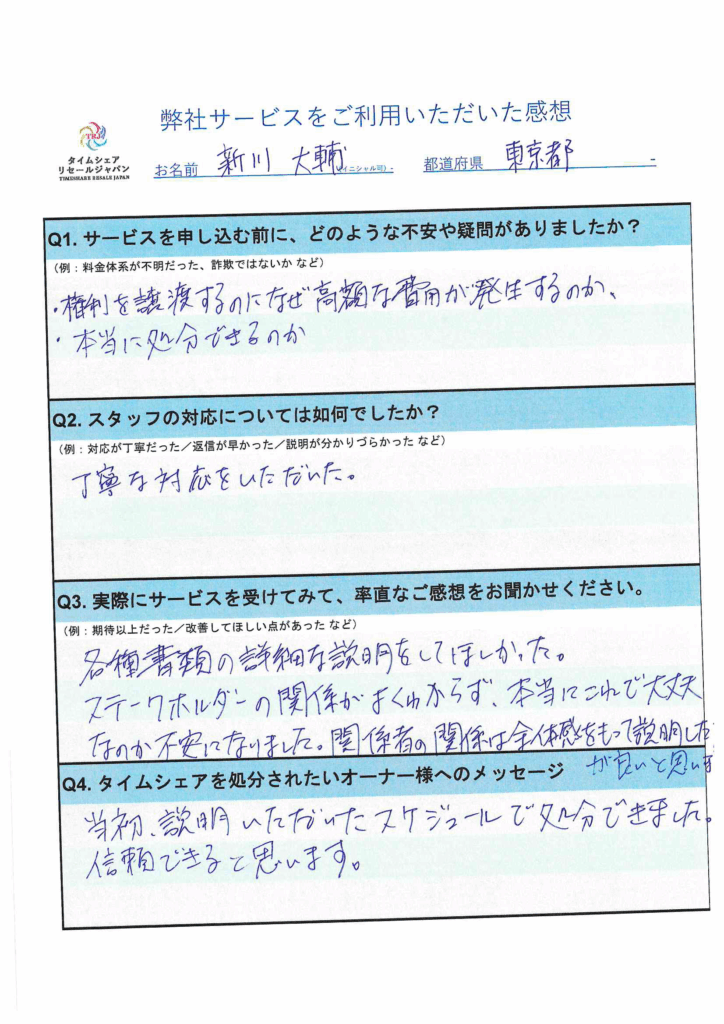 弊社サービスをご利用いただいた感想
TRJ
タイムシェア
リセールジャパン
TIMESHARE RESALE JAPAN
お名前 新川 大輔 (イニシャル可)- 都道府県 東京都 -
Q1. サービスを申し込む前に、どのような不安や疑問がありましたか？
（例：料金体系が不明だった、詐欺ではないか など）
・権利を譲渡するのになぜ高額な費用が発生するのか、
・本当に処分できるのか
Q2. スタッフの対応については如何でしたか？
（例：対応が丁寧だった／返信が早かった／説明が分かりづらかった など）
丁寧な対応をいただいた。
Q3. 実際にサービスを受けてみて、率直なご感想をお聞かせください。
（例：期待以上だった／改善してほしい点があった など）
各種書類の詳細な説明をしてほしかった。
ステークホルダーの関係がよくわからず、本当にこれで大丈夫
なのか不安になりました。関係者の関係は全体感をもって説明した方
が良いと思います
Q4. タイムシェアを処分されたいオーナー様へのメッセージ
当初、説明いただいたスケジュールで処分できました。
信頼できると思います。